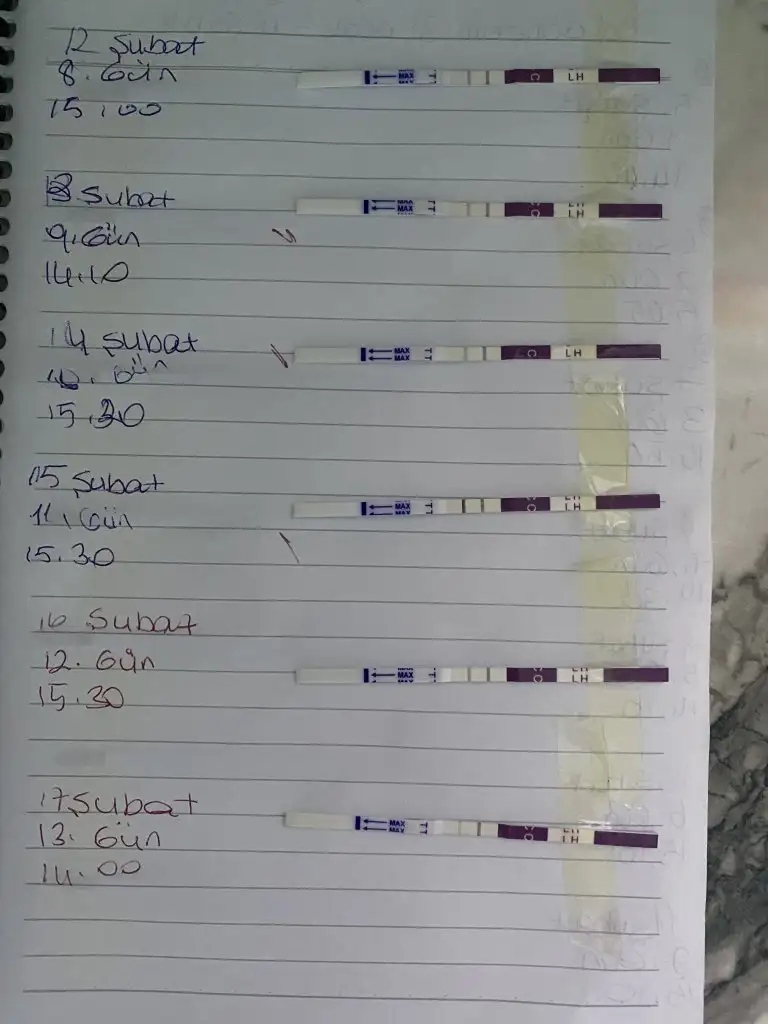 12 Şubat
8. Gün
15.00
MAX
T
C
LH
13 Şubat
9. Gün
14.10
MAX
MAX
T
C
LH
LH
14 Şubat
10. Gün
15.30
MAX
MAX
T
C
LH
15 Şubat
11. Gün
15.30
MAX
MAX
T
C
LH
LH
16 Şubat
12. Gün
15.30
MAX
MAX
MAX
T
C
LH
LH
17 Şubat
13. Gün
14.00
MAX
MAX
T
T
C
LH
LH